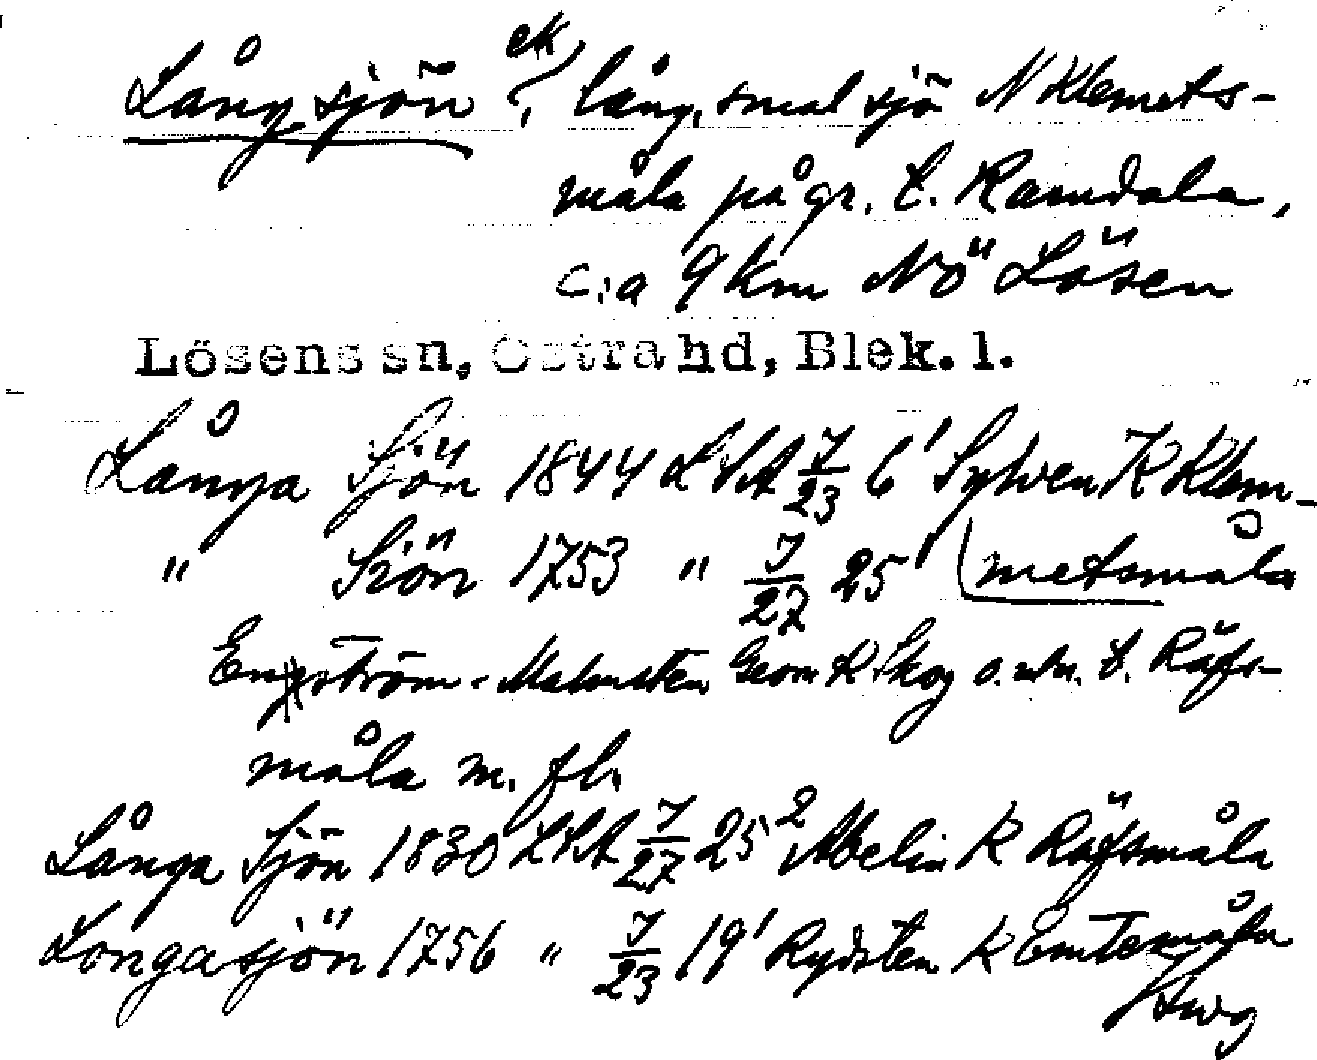 Långsjön ek, lång, smal sjö N Klemets-
måla på gr. t. Ramdala,
c:a 9 km NÖ Lösen
Lösens sn, Östra hd, Blek. l.
Långa Sjön 1844 LSA J/23 6¹ Sylven K Klem-
" Siön 1753 " J/27 25¹ metsmåla
Engström-Malmsten Geom K Skog o. utm. t. Räfs-
måla m. fl.
Långa Sjön 1830 LSA J/27 25² Abelin K Räfsmåla
Longasjön 1756 " J/23 19¹ Rydsten K Emtemåla